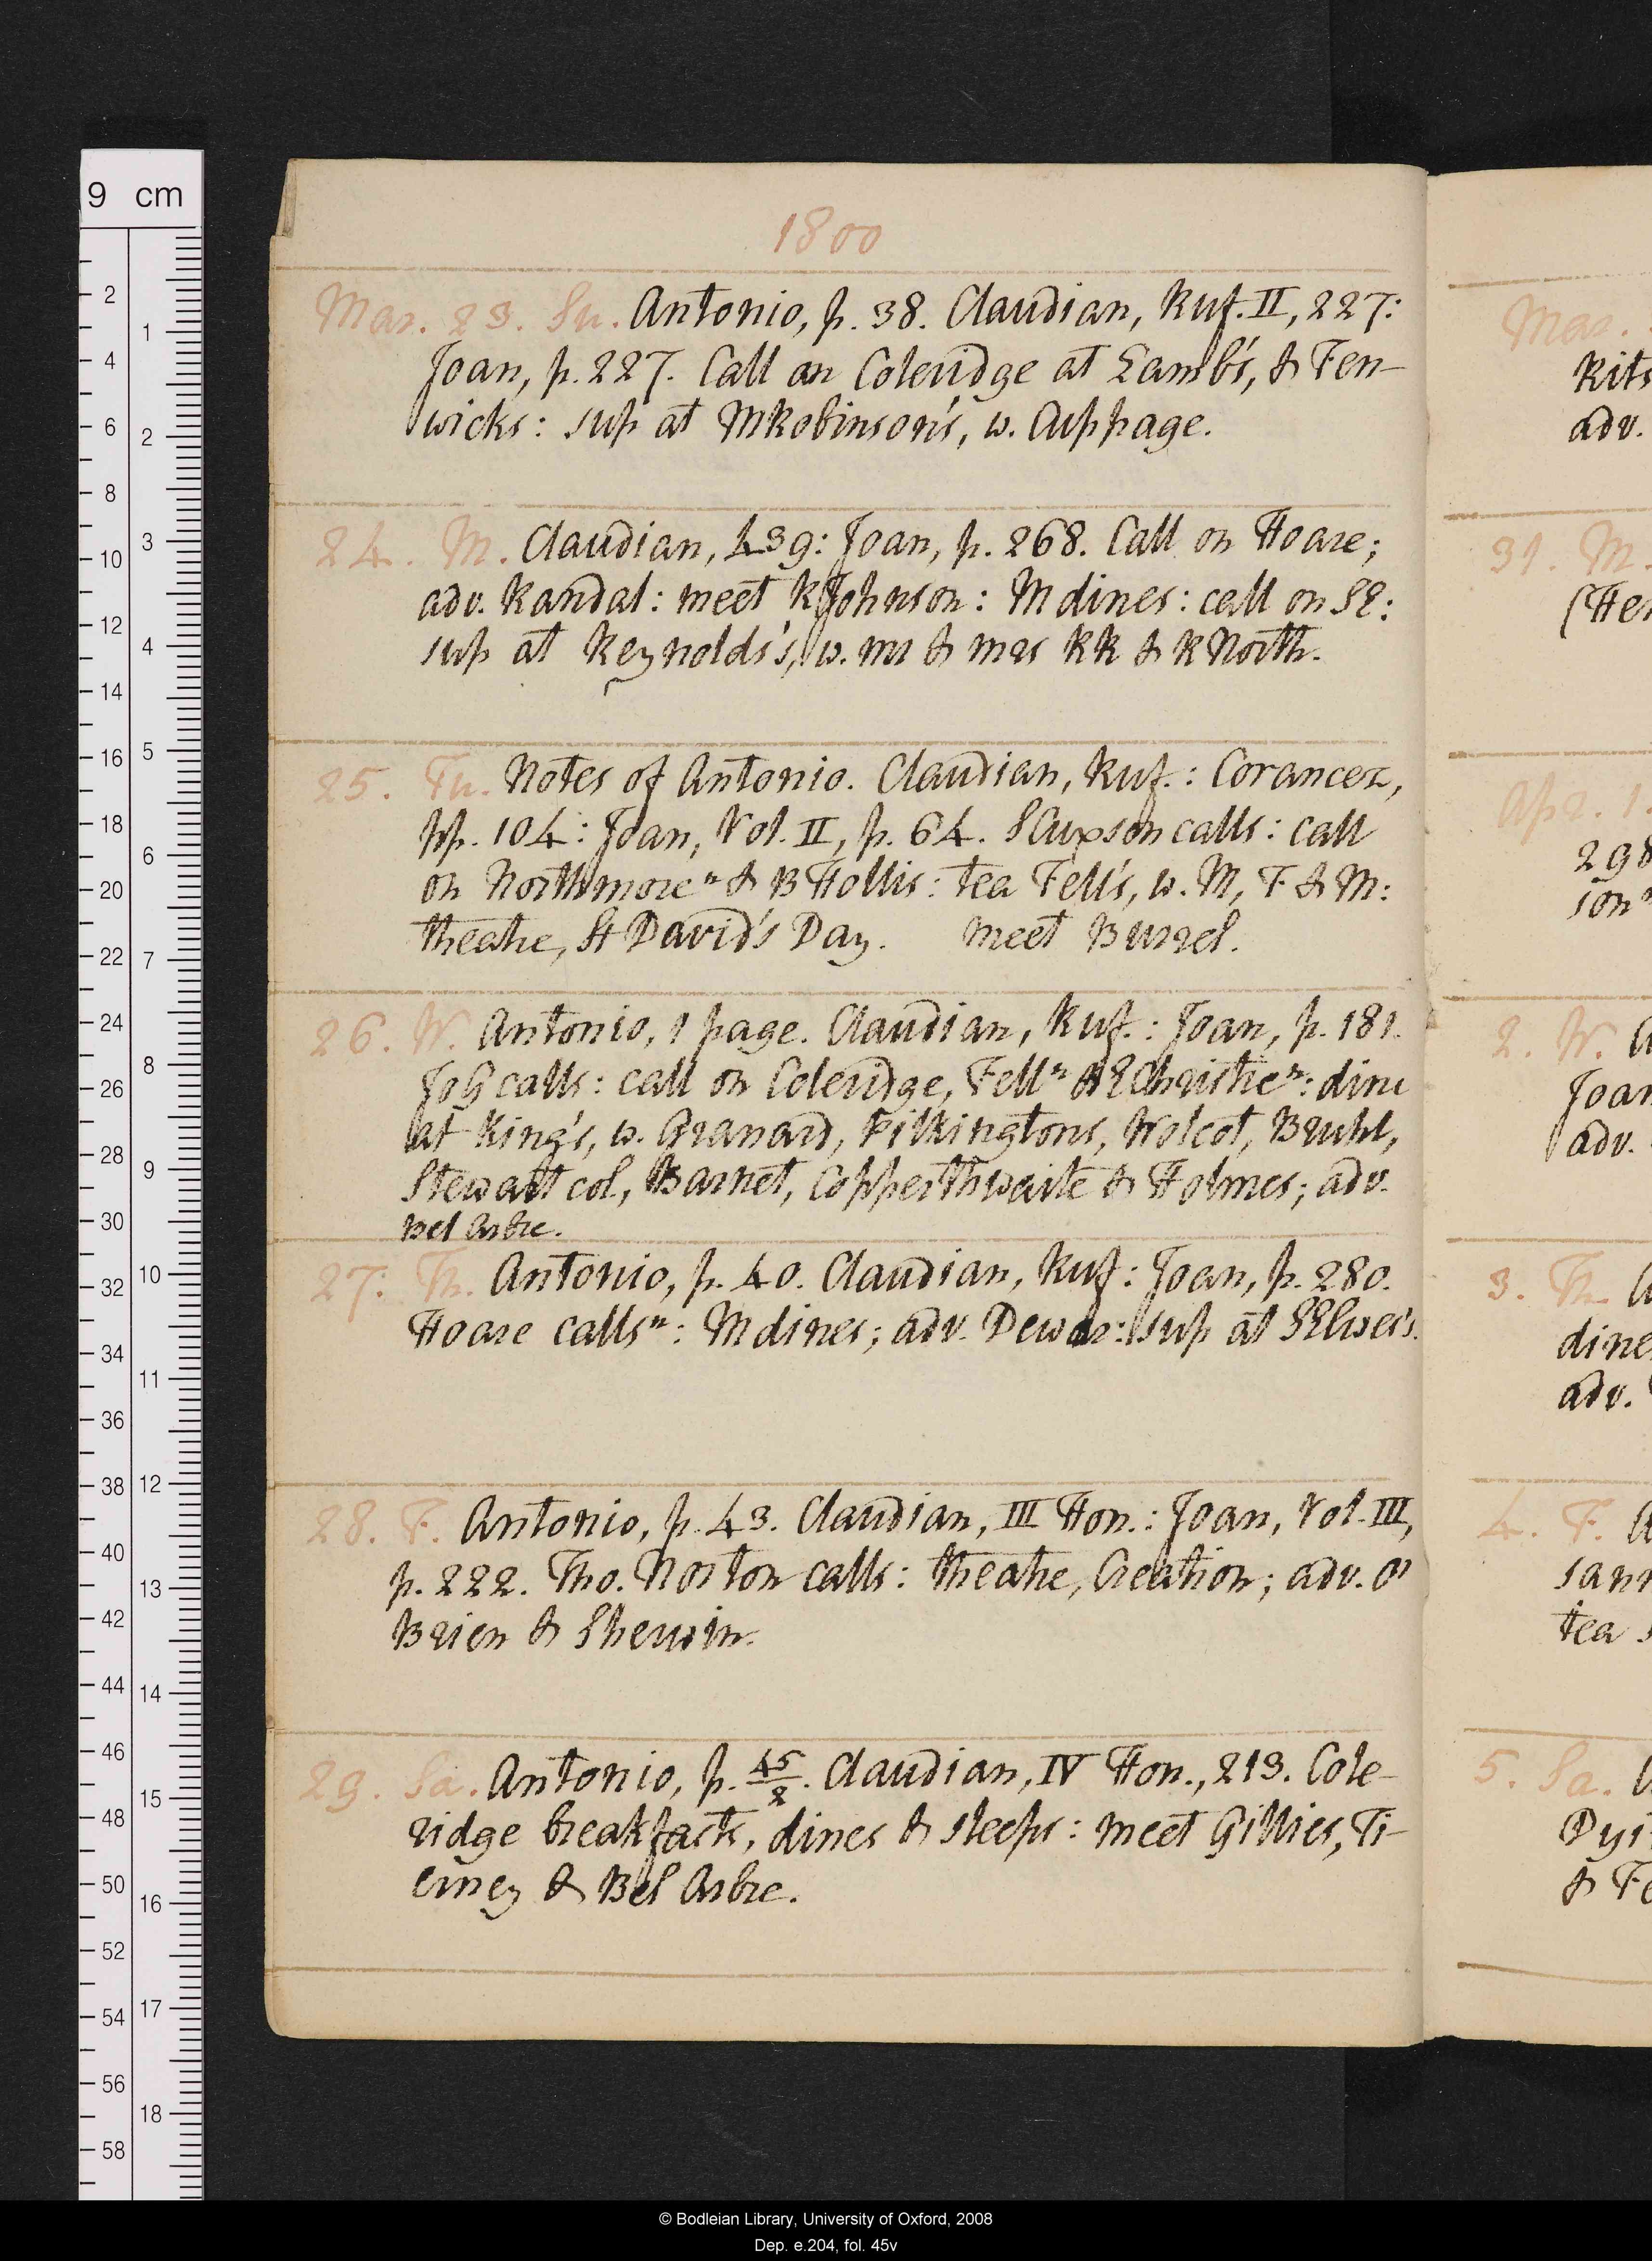 1800
Mar. 23. Su. Antonio, p. 38. Claudian, Ruf. II, 227:
Joan, p. 227. Call on Coleridge at Lamb's, & Fen-
wicks: sup at MRobinson's, w. Cuppage.
24. M. Claudian, 439: Joan, p. 268. Call on Hoare;
adv. Randal: meet RJohnson: M dines: call on SE:
sup at Reynolds's, w. mr & mrs RR & R North.
25. Tu. Notes of Antonio. Claudian, Ruf.: Corancez,
pp. 104: Joan, Vol. II, p. 64. calls: call
on Northmore n & B Hollis: tea Fell's, w. M, F & M:
theatre, St David's Day. meet Burrel.
26. W. Antonio, 1 page. Claudian, Ruf.: Joan, p. 181.
JoG calls: call on Coleridge, Fell n & Christie n: dine
at King's, w. Granard, Pilkingtons, Wolcot, Bruhl,
Stewart col, Barnet, Copperthwaite & Holmes; adv.
Bel Arbre.
27. Th. Antonio, p. 40. Claudian, Ruf: Joan, p. 280.
Hoare calls n: M dines; adv. Dewar: sup at SElwes's.
28. F. Antonio, p. 43. Claudian, III Hon.: Joan, Vol. III,
p. 222. Tho. Norton calls: theatre, Creation; adv. O'
Brien & Sherwin.
29. Sa. Antonio, p. 45/2. Claudian, IV Hon., 213. Cole-
ridge breakfasts, dines & sleeps: meet Gillies, Ti-
erney & Bel Arbre.
Mar.
kits
adv.
31. M.
(Her
Apr. 1.
298
son n
2. W. A
Joan
adv.
3. Th. A
dine
adv.
4. F. A
sann
tea
5. Sa. A
Dys
& Fe
9 cm
2
4
6
8
10
12
14
16
18
20
22
24
26
28
30
32
34
36
38
40
42
44
46
48
50
52
54
56
58
1
2
3
4
5
6
7
8
9
10
11
12
13
14
15
16
17
18
© Bodleian Library, University of Oxford, 2008
Dep. e.204, fol. 45v